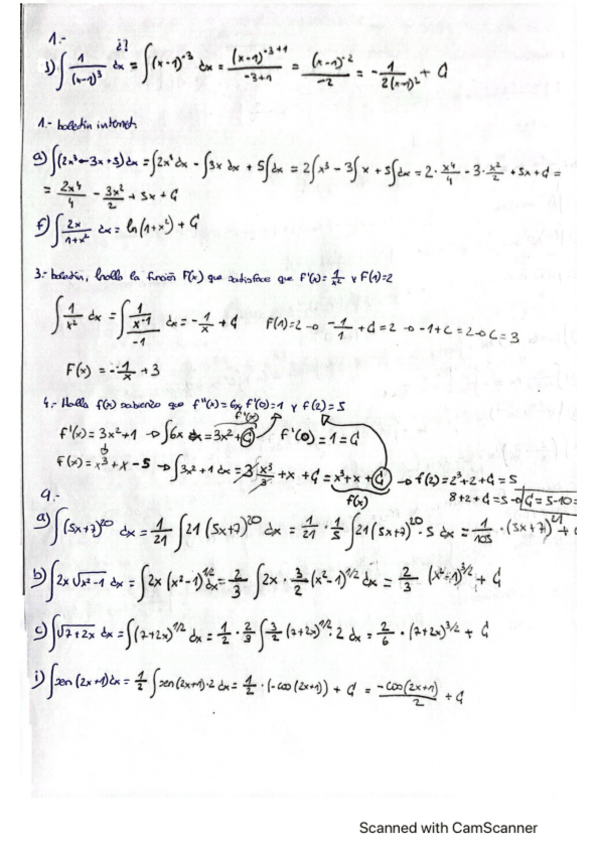 1.-
¿?
j) ∫ 1/(x-1)^3 dx = ∫(x-1)^-3 dx = (x-1)^-3+1 / -3+1 = (x-1)^-2 / -2 = - 1/2(x-1)^2 + C
1.- boletín internet.
a) ∫(2x^3-3x+5)dx = ∫2x^3 dx - ∫3x dx + 5∫dx = 2∫x^3 - 3∫x + 5∫dx = 2·x^4/4 - 3·x^2/2 + 5x + C =
= 2x^4/4 - 3x^2/2 + 5x + C
f) ∫ 2x/1+x^2 dx = ln(1+x^2) + C
3.- boletín, halla la función F(x) que satisface que F'(x) = 1/x^2 y F(1)=2
∫ 1/x^2 dx = ∫ 1/x^-1 / -1 dx = - 1/x + C F(1)=2 → -1/1 + C = 2 → -1+C = 2 → C = 3
F(x) = - 1/x + 3
4.- Halla f(x) sabiendo que f''(x)=6x, f'(0)=1 y f(2)=5
f'(x)
f'(x) = 3x^2+1 → ∫6x dx = 3x^2 + C f'(0) = 1 = C
f(x) = x^3 + x - 5 → ∫3x^2+1 dx = 3 x^3/3 + x + C = x^3 + x + C → f(2) = 2^3+2+C = 5
f(x) 8+2+C = 5 → C = 5-10 =
9.-
a) ∫(5x+7)^20 dx = 1/21 ∫21(5x+7)^20 dx = 1/21 · 1/5 ∫21(5x+7)^20 · 5 dx = 1/105 · (5x+7)^21 + C
b) ∫2x √x^2-1 dx = ∫2x (x^2-1)^1/2 dx = 2/3 ∫2x · 3/2 (x^2-1)^1/2 dx = 2/3 (x^2-1)^3/2 + C
c) ∫√7+2x dx = ∫(7+2x)^1/2 dx = 1/2 · 2/3 ∫ 3/2 (7+2x)^1/2 · 2 dx = 2/6 · (7+2x)^3/2 + C
i) ∫sen(2x+1)dx = 1/2 ∫sen(2x+1)·2 dx = 1/2 · (-cos(2x+1)) + C = -cos(2x+1)/2 + C
Scanned with CamScanner